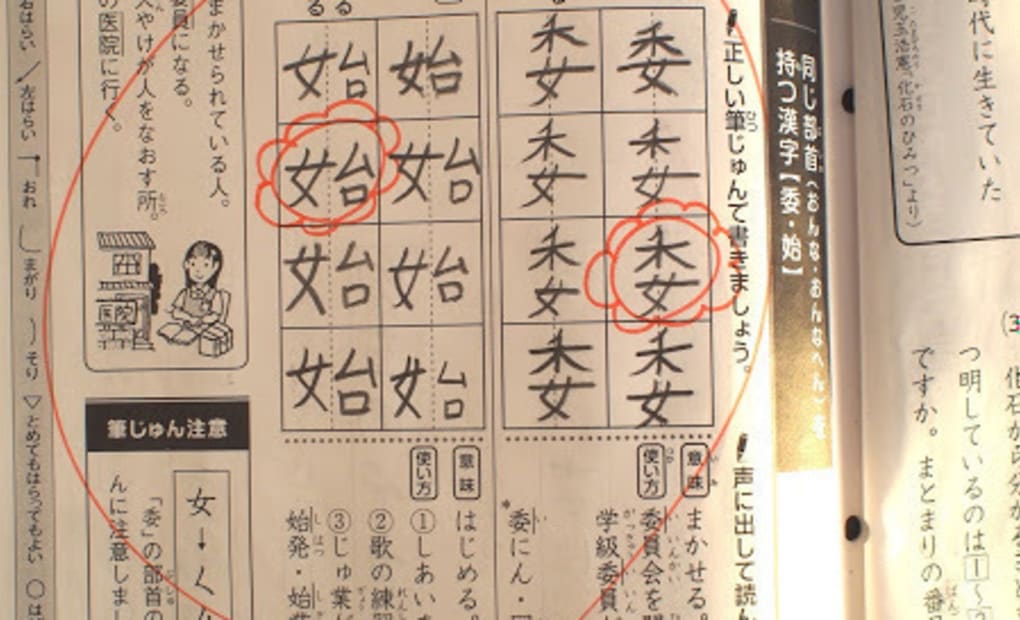 時代に生きていた
児玉浩憲「化石のひみつ」より)
(3
化石から
つ明しているのは1〜2
ですか。まとまりの番
同じ部首(おんな・おんなへん)を
持つ漢字【委・始】
正しい筆じゅんで書きましょう。
声に出して読ん
委 委 委 委
委 委 委 委
始 始 始 始
始 始 始 始
意味
まかせる。
使い方
委員会を開
学級委員
*委にん・
意味
はじめる。
使い方
①しあいを
②歌の練習
③じゅ業が
始発・始業
まかせられている人。
委員になる。
やけが人をなおす所。
の医院に行く。
医院
筆じゅん注意
女→く
「委」の部首の
んに注意しまし
右はらい
左はらい
おれ
まがり
そり
▽とめてもはらってもよい
○は